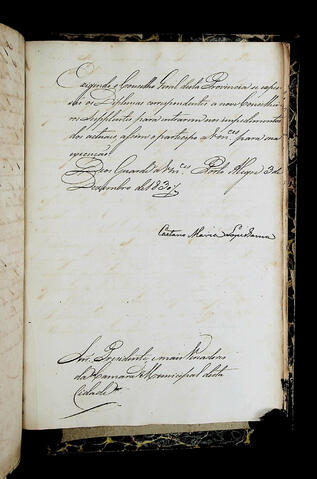 Exigindo o Conselho Geral desta Provincia se expes-
são os Diplomas correspondentes a nove Conselhei-
ros Supplentes para entrarem nos impedimentos
dos actuais, assim o participo a V.mces para sua
execução.
Deos Guarde a V.mces Porto Alegre 3 de
Dezembro de 1830
Caetano Maria Lopes Gama
Snr. Presidente, e mais Vereadores
da Camara Municipal desta
Cidade